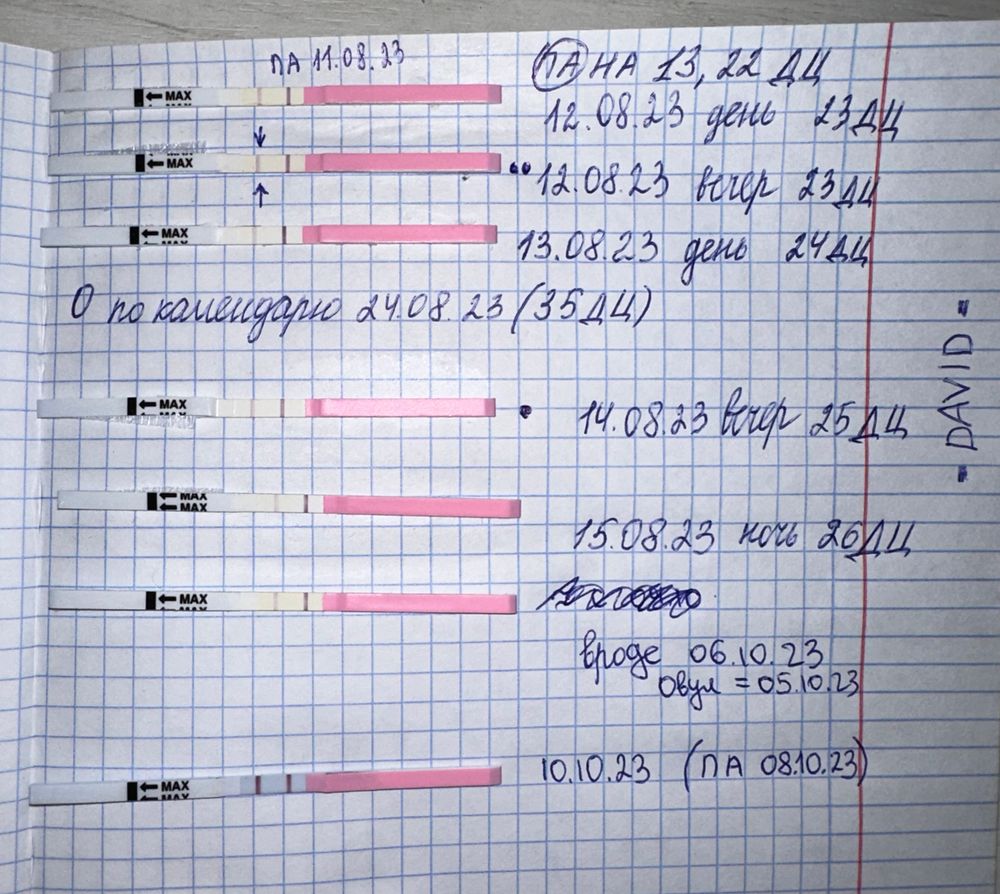 ПА 11.08.23
ПА НА 13, 22 ДЦ
← MAX
12.08.23 день 23ДЦ
← MAX
12.08.23 вечер 23ДЦ
← MAX
13.08.23 день 24ДЦ
О по календарю 24.08.23 (35ДЦ)
- DAVID -
← MAX
14.08.23 вечер 25ДЦ
← MAX
← MAX
15.08.23 ночь 26ДЦ
← MAX
вроде 06.10.23
Овул = 05.10.23
← MAX
← MAX
10.10.23 (ПА 08.10.23)